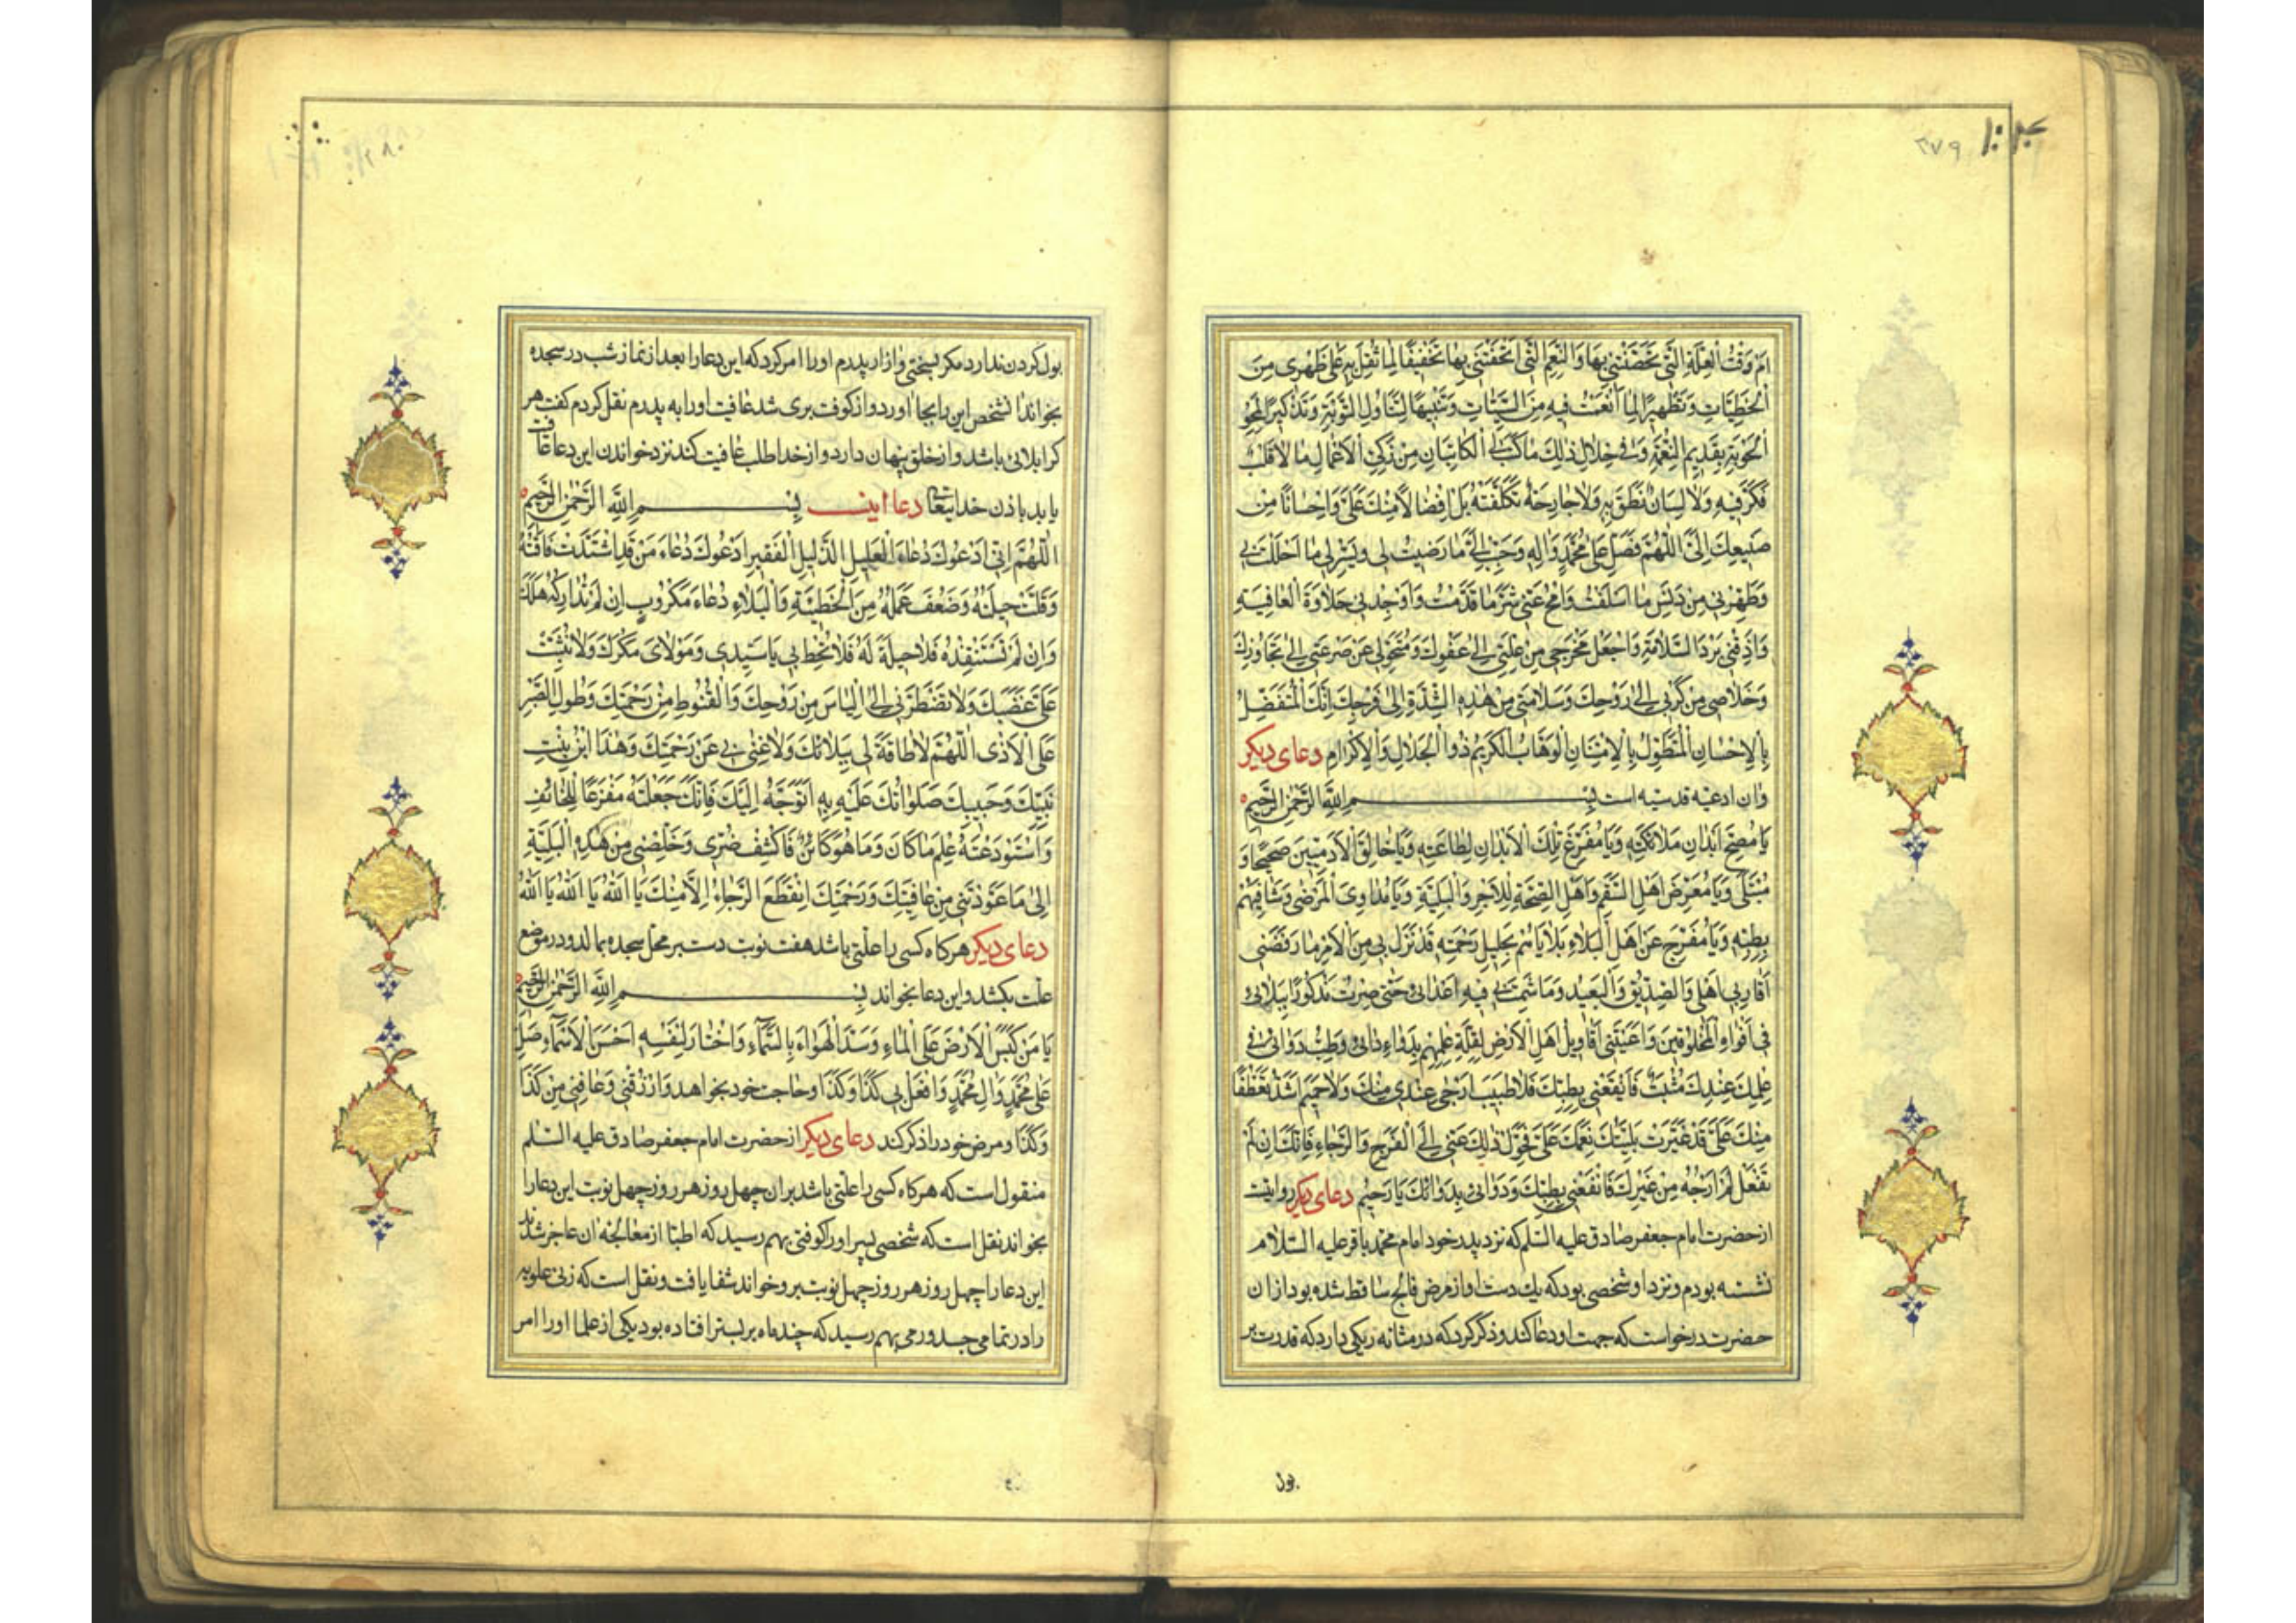 ٢٧٩
اَمْ وَقْتُ الْعِلَّةِ الَّتي مَحَّصْتَني بِهَا وَالنِّعَمِ الَّتي اَتْحَفْتَني بِها تَخْفيفًا لِما ثَقُلَ بِهِ عَلى ظَهْري مِنَ
الْخَطيئاتِ وَتَطْهيرًا لِمَا انْغَمَسْتُ فيهِ مِنَ السَّيِّئاتِ وَتَنْبيهًا لِتَناوُلِ التَّوْبَةِ وَتَذْكيرًا لِمَحْوِ
الْحَوْبَةِ بِقَديمِ النِّعْمَةِ وَفي خِلالِ ذٰلِكَ ما كَتَبَ لِيَ الْكاتِبانِ مِنْ زَكِيِّ الْاَعْمالِ ما لا قَلْبٌ
فَكَّرَ فيهِ وَلا لِسانٌ نَطَقَ بِهِ وَلا جارِحَةٌ تَكَلَّفَتْهُ بَلْ اِفْضالًا مِنْكَ عَلَيَّ وَاِحْسانًا مِنْ
صَنيعِكَ اِلَيَّ اَللّٰهُمَّ فَصَلِّ عَلٰى مُحَمَّدٍ وَاٰلِهِ وَحَبِّبْ اِلَيَّ ما رَضيتَ لي وَيَسِّرْ لي ما اَحْلَلْتَ بي
وَطَهِّرْني مِنْ دَنَسِ ما اَسْلَفْتُ وَامْحُ عَنّي شَرَّ ما قَدَّمْتُ وَاَوْجِدْني حَلاوَةَ الْعافِيَةِ
وَاَذِقْني بَرْدَ السَّلامَةِ وَاجْعَلْ مَخْرَجي مِنْ عِلَّتي اِلٰى عَفْوِكَ وَمُتَحَوَّلي عَنْ صَرْعَتي اِلٰى تَجاوُزِكَ
وَخَلاصي مِنْ كَرْبي اِلٰى رَوْحِكَ وَسَلامَتي مِنْ هٰذِهِ الشِّدَّةِ اِلٰى فَرَجِكَ اِنَّكَ الْمُتَفَضِّلُ
بِالْاِحْسانِ الْمُتَطَوِّلُ بِالْاِمْتِنانِ الْوَهّابُ الْكَريمُ ذُو الْجَلالِ وَالْاِكْرامِ دعای دیکر
وان ادعیه قدسیه است بِسْمِ اللّٰهِ الرَّحْمٰنِ الرَّحيمِ
يا مُصِحَّ اَبْدانِ مَلائِكَتِهِ وَيا مُفَرِّغَ تِلْكَ الْاَبْدانِ لِطاعَتِهِ وَيا خالِقَ الْاٰدَمِيّينَ صَحيحًا وَ
مُبْتَلًى وَيا مُعَرِّضَ اَهْلِ السُّقْمِ وَاَهْلِ الصِّحَّةِ لِلْاَجْرِ وَالْبَلِيَّةِ وَيا مُداوِيَ الْمَرْضٰى وَشافِيَهُمْ
بِطِبِّهِ وَيا مُفَرِّجَ عَنْ اَهْلِ الْبَلاءِ بَلاياهُمْ بِجَليلِ رَحْمَتِهِ قَدْ نَزَلَ بي مِنَ الْاَمْرِ ما رَفَضَني
اَقارِبي اَهْلي وَالصَّديقُ وَالْبَعيدُ وَما شَمِتَ بي فيهِ اَعْدائي حَتّٰى صِرْتُ مَذْكُورًا بِبَلائي
في اَفْواهِ الْمَخْلُوقينَ وَاَعْيَتْني اَقاويلُ اَهْلِ الْاَرْضِ لِقِلَّةِ عِلْمِهِمْ بِدَواءِ دائي وَطِبُّ دَوائي في
عِلْمِكَ عِنْدَكَ مُثْبَتٌ فَانْفَعْني بِطِبِّكَ فَلا طَبيبَ اَرْجٰى عِنْدي مِنْكَ وَلا حَميمَ اَشَدُّ تَعَطُّفًا
مِنْكَ عَلَيَّ قَدْ غَيَّرَتْ بَلِيَّتُكَ نِعَمَكَ عَلَيَّ فَحَوِّلْ ذٰلِكَ عَنّي اِلَى الْفَرَجِ وَالرَّجاءِ فَاِنَّكَ اِنْ لَمْ
تَفْعَلْ لَمْ اَرْجُهُ مِنْ غَيْرِكَ فَانْفَعْني بِطِبِّكَ وَدَوائي بِدَوائِكَ يا رَحيمُ دعای دیکر روایت
از حضرت امام جعفر صادق علیه السلم که نزد پدر خود امام محمد باقر علیه السلام
نشسته بودم و نزد او شخصی بود که یك دست او از مرض فالج ساقط شده بود از ان
حضرت درخواست که جهت او دعا کند و ذکر کرد که در مثانه ریکی دارد که قدرت بر
بول
٢٨٠
بول کردن ندارد مکر بسختی و ازار پدرم او را امر کرد که این دعا را بعد از نماز شب در سجده
بخواند ان شخص این را بجا اورد و از کوفت بری شد عافیت او را به پدرم نقل کردم کفت هر
کرا بلائی باشد و از خلق پنهان دارد و از خدا طلب عافیت کند نزد خواندن این دعا عافیت
یابد باذن خدایتعا دعا اینست بِسْمِ اللّٰهِ الرَّحْمٰنِ الرَّحيمِ
اَللّٰهُمَّ اِنّي اَدْعُوكَ دُعاءَ الْعَليلِ الذَّليلِ الْفَقيرِ اَدْعُوكَ دُعاءَ مَنْ قَدِ اشْتَدَّتْ فاقَتُهُ
وَقَلَّتْ حيلَتُهُ وَضَعُفَ عَمَلُهُ مِنَ الْخَطيئَةِ وَالْبَلاءِ دُعاءَ مَكْرُوبٍ اِنْ لَمْ تُدارِكْهُ هَلَكَ
وَاِنْ لَمْ تَسْتَنْقِذْهُ فَلا حيلَةَ لَهُ فَلا تُحِطْ بي يا سَيِّدي وَمَوْلايَ مَكْرَكَ وَلا تُثْبِتْ
عَلَيَّ غَضَبَكَ وَلا تَضْطَرَّني اِلَى الْيَاْسِ مِنْ رَوْحِكَ وَالْقُنُوطِ مِنْ رَحْمَتِكَ وَطُولِ الصَّبْرِ
عَلَى الْاَذٰى اَللّٰهُمَّ لا طاقَةَ لي بِبَلائِكَ وَلا غِنٰى بي عَنْ رَحْمَتِكَ وَهٰذَا ابْنُ بِنْتِ
نَبِيِّكَ وَحَبيبِكَ صَلَواتُكَ عَلَيْهِ بِهِ اَتَوَجَّهُ اِلَيْكَ فَاِنَّكَ جَعَلْتَهُ مَفْزَعًا لِلْخائِفِ
وَاسْتَوْدَعْتَهُ عِلْمَ ما كانَ وَما هُوَ كائِنٌ فَاكْشِفْ ضُرّي وَخَلِّصْني مِنْ هٰذِهِ الْبَلِيَّةِ
اِلٰى ما عَوَّدْتَني مِنْ عافِيَتِكَ وَرَحْمَتِكَ اِنْقَطَعَ الرَّجاءُ اِلّا مِنْكَ يا اَللّٰهُ يا اَللّٰهُ يا اَللّٰهُ
دعای دیکر هرکاه کسی را علتی باشد هفت نوبت دست بر محل سجده بمالد و در موضع
علت بکشد و این دعا بخواند بِسْمِ اللّٰهِ الرَّحْمٰنِ الرَّحيمِ
يا مَنْ كَبَسَ الْاَرْضَ عَلَى الْماءِ وَسَدَّ الْهَواءَ بِالسَّماءِ وَاخْتارَ لِنَفْسِهِ اَحْسَنَ الْاَسْماءِ صَلِّ
عَلٰى مُحَمَّدٍ وَاٰلِ مُحَمَّدٍ وَافْعَلْ بي كَذا وَكَذا و حاجت خود بخواهد وَارْزُقْني وَعافِني مِنْ كَذا
وَكَذا و مرض خود را ذکر کند دعای دیکر از حضرت امام جعفر صادق علیه السلم
منقول است که هرکاه کسی را علتی باشد بر ان چهل روز هر روز چهل نوبت این دعا را
بخواند نقل است که شخصی پسر او را کوفتی بهم رسید که اطبا از معالجه ان عاجز شدند
این دعا را چهل روز هر روز چهل نوبت بر و خواند شفا یافت و نقل است که زنی علویه
را در تمامی جسد ورمی بهم رسید که چند ماه بر بستر افتاده بود یکی از علما او را امر